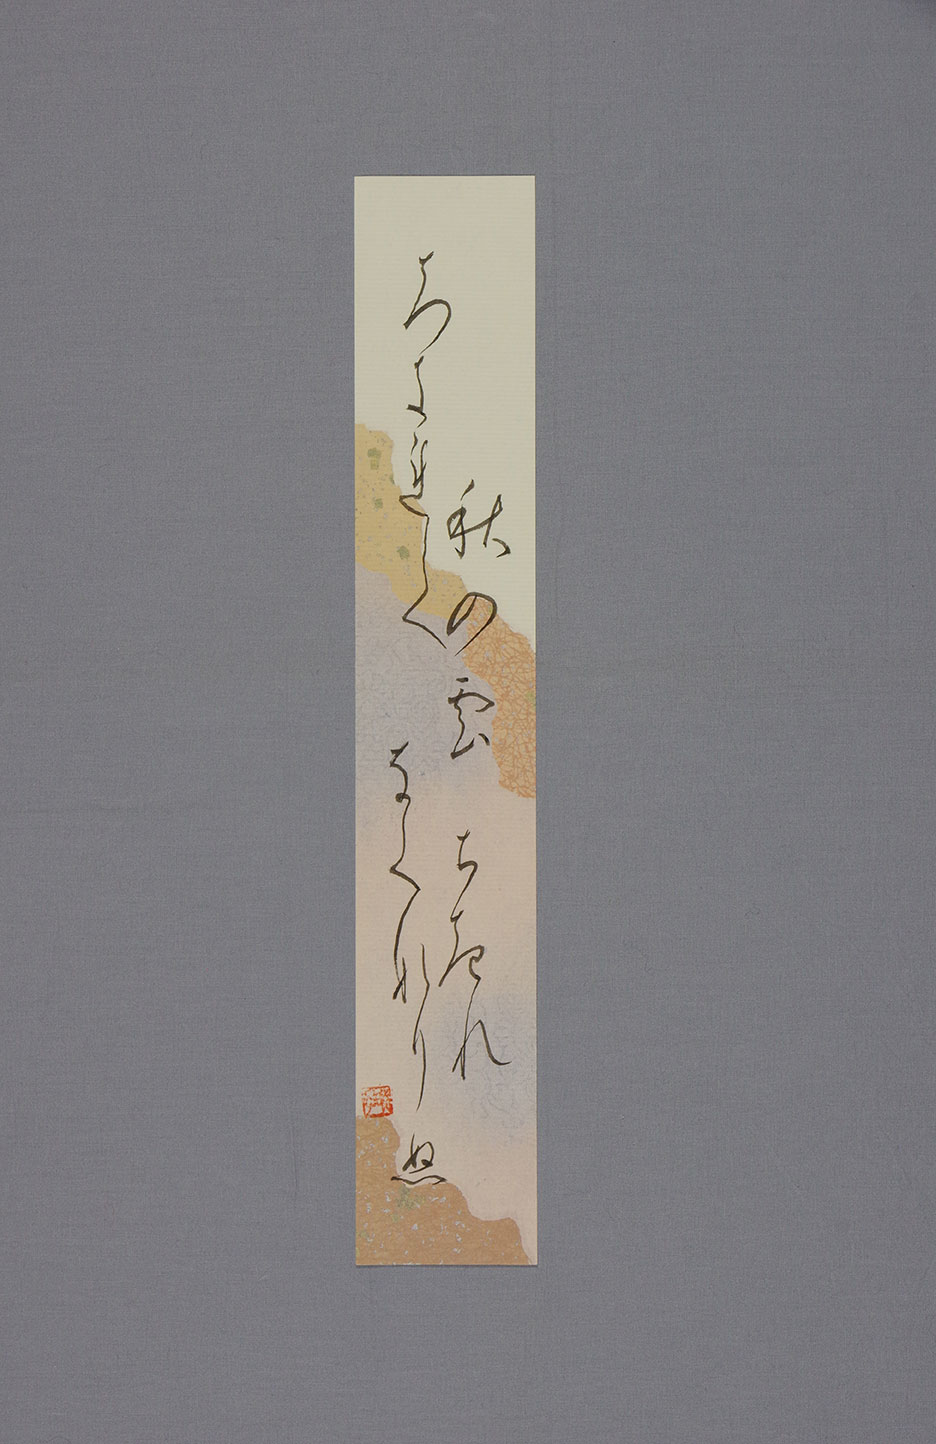 秋の雲ちきれ
ちきれてなくなりぬ